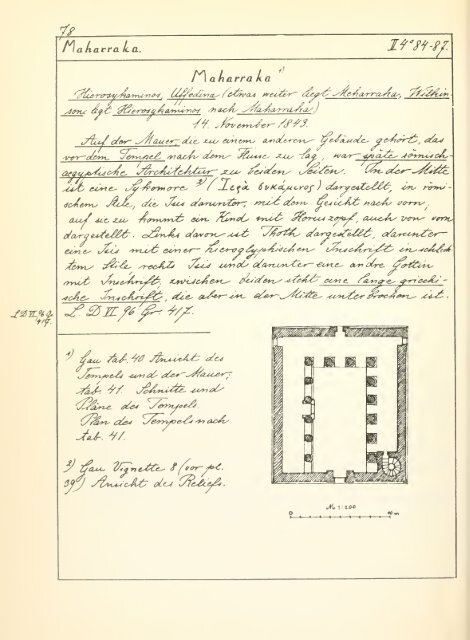 78
Maharraka. II 4° 84-87.
Maharraka ¹)
Hierosykaminos, Uffedina (etwas weiter liegt Meharraka, Wilkin-
son legt Hierosykaminos nach Maharraka.)
14. November 1843.
Auf der Mauer die zu einem anderen Gebäude gehört, das
vor dem Tempel nach dem Flusse zu lag, war späte römisch-
aegyptische Architektur, zu beiden Seiten. In der Mitte
ist eine Sykomore ²) (Ἱερὰ συκάμινος) dargestellt, in römi-
schem Stile, die Isis darunter, mit dem Gesicht nach vorn,
auf sie zu kommt ein Kind mit Horuszopf, auch von vorn
dargestellt. Links davon ist Thoth dargestellt, darunter
eine Isis mit einer hieroglyphischen Inschrift in schlech
tem Stile rechts Isis und darunter eine andre Göttin
mit Inschrift, zwischen beiden steht eine lange griechi-
sche Inschrift, die aber in der Mitte unterbrochen ist.
L. D VI 96 Gr 417.
L D VI 96 Gr
417.
¹) Gau tab. 40 Ansicht des
Tempels und der Mauer;
tab. 41. Schnitte und
Pläne des Tempels.
Plan des Tempels nach
tab. 41.
²) Gau Vignette 8 (vor pl.
39) Ansicht des Reliefs.
M. 1:200
0 10 m